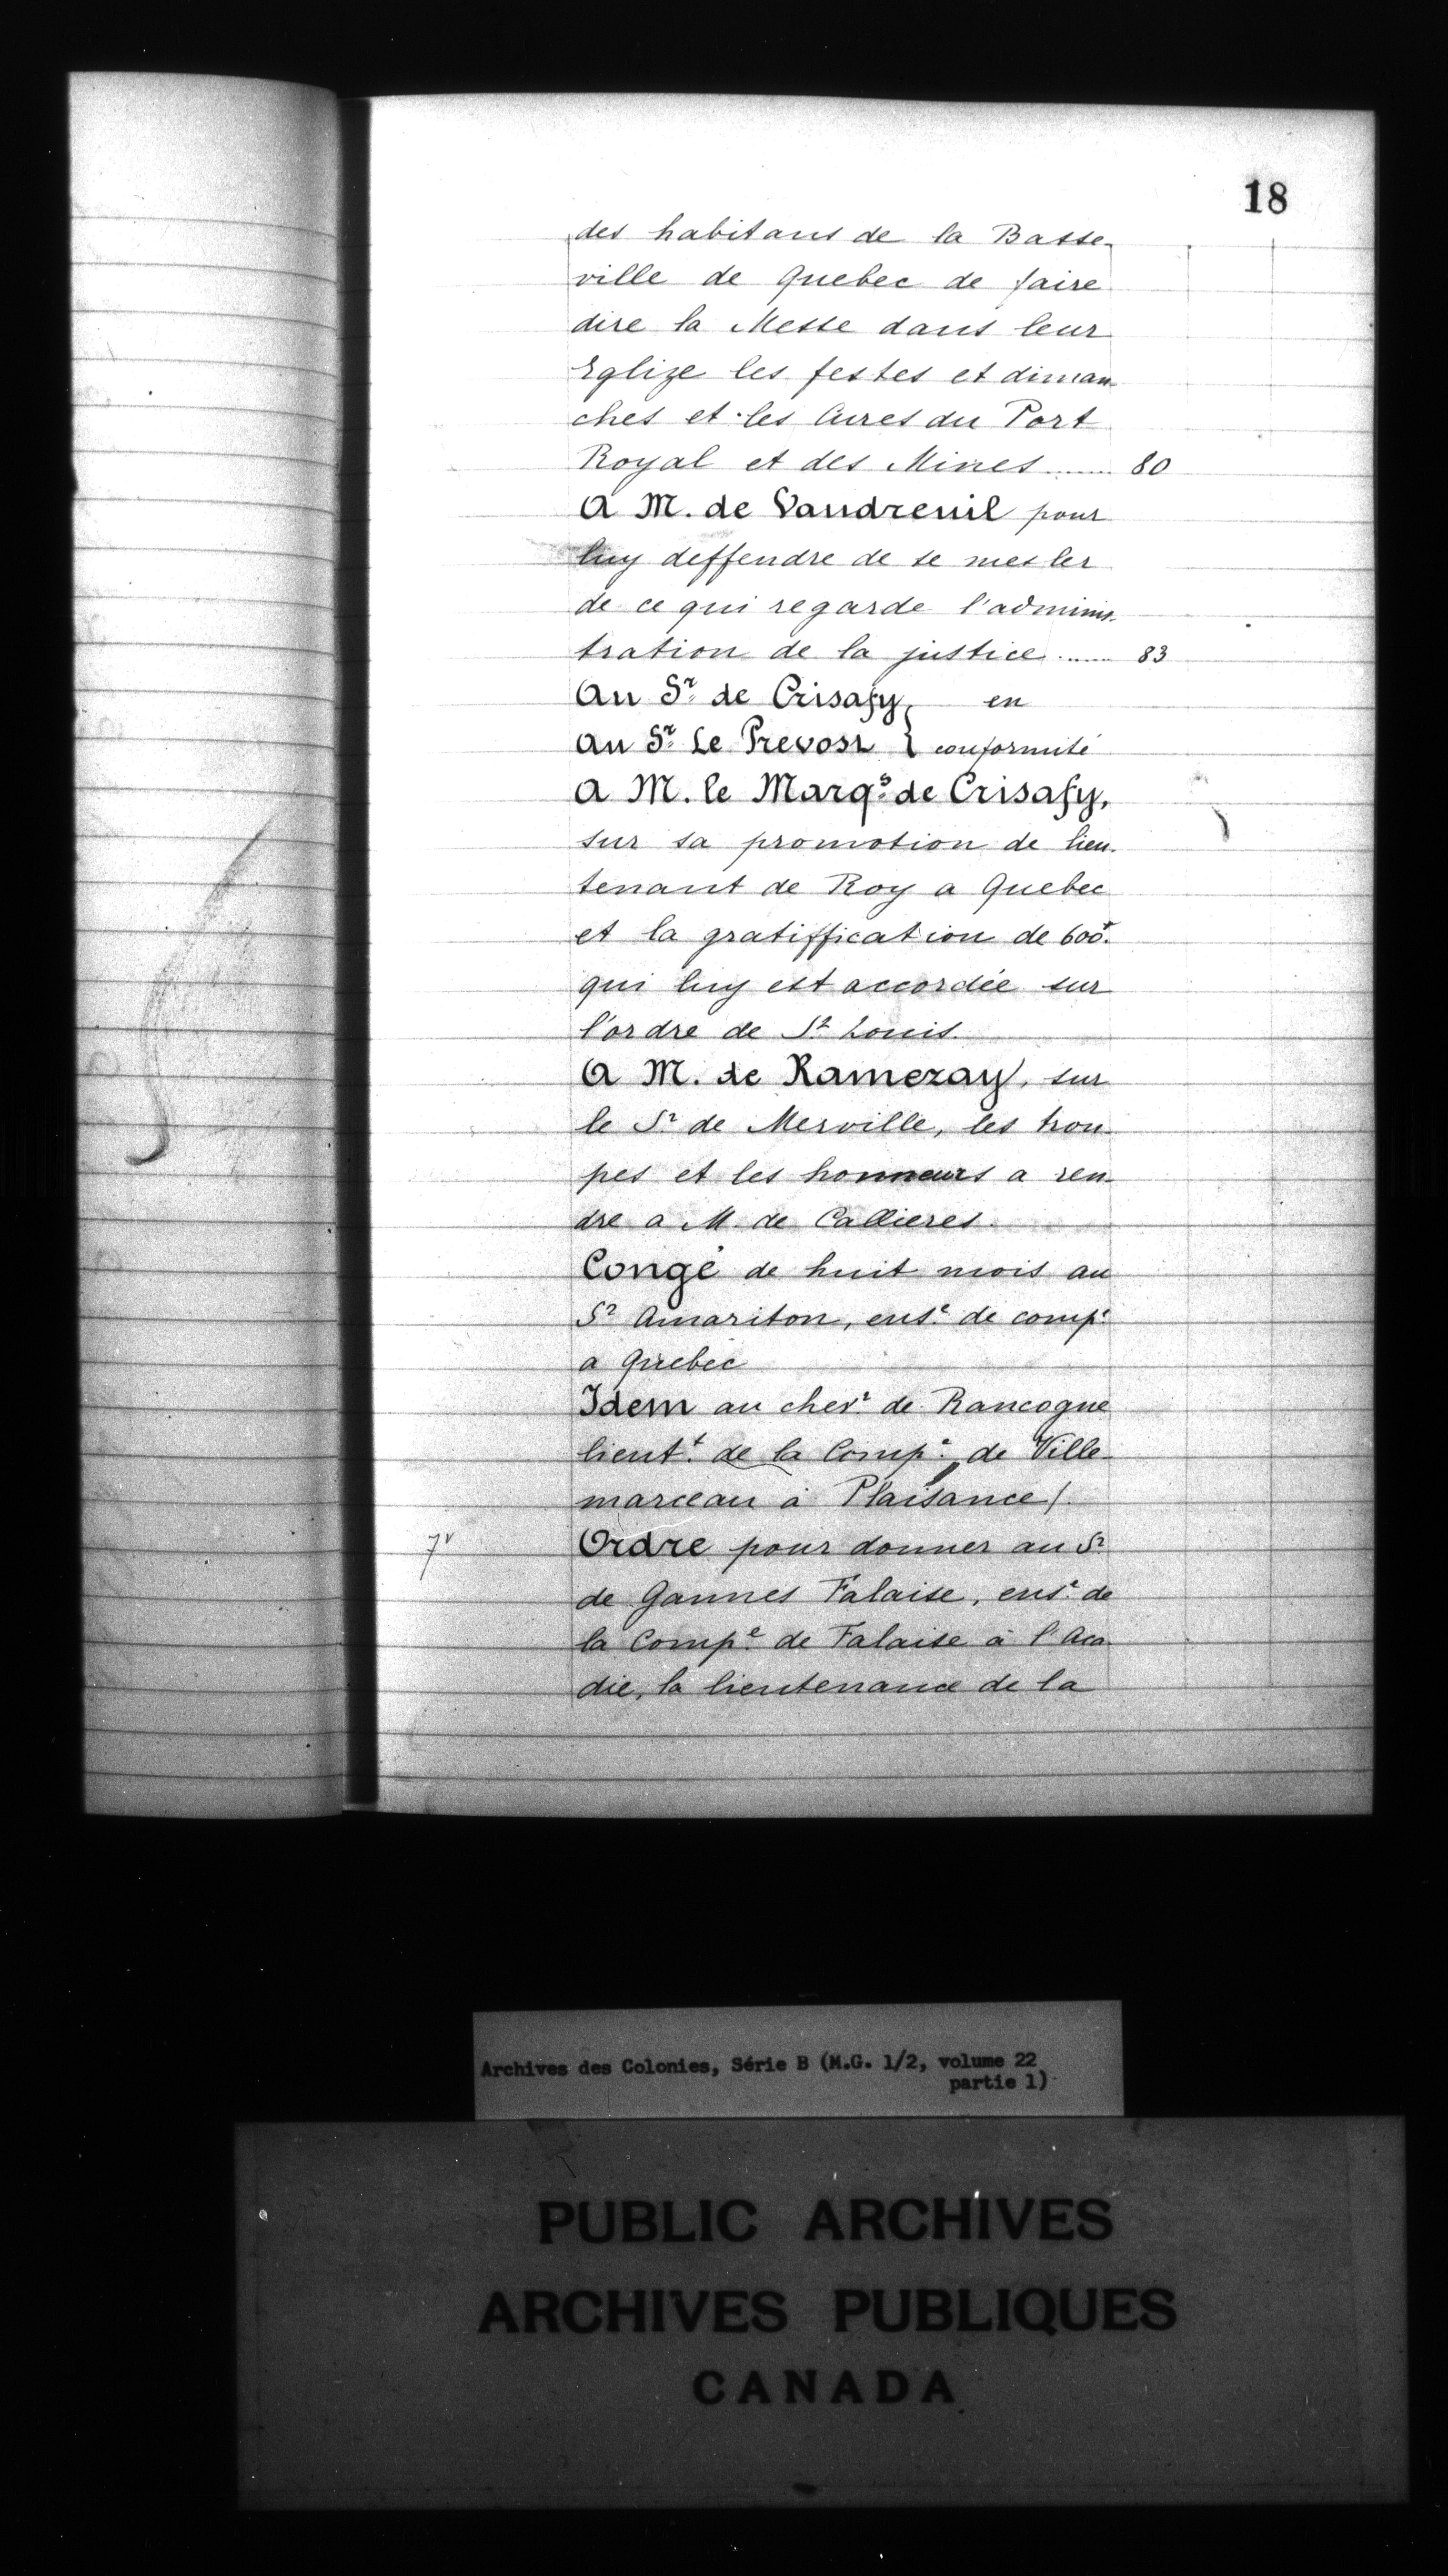 18
des habitans de la Basse-
ville de Quebec de faire
dire la Messe dans leur
Eglize les festes et diman-
ches et les Cures du Port
Royal et des Mines ........ 80
A M. de Vaudreuil pour
luy deffendre de se mesler
de ce qui regarde l'adminis-
tration de la justice ....... 83
Au Sr. de Crisafy, } en
Au Sr. Le Prevost } conformité
A M. le Marqs. de Crisafy,
sur sa promotion de lieu-
tenant de Roy a Quebec
et la gratiffication de 600ᵗ.
qui luy est accordée sur
l'ordre de St. Louis.
A M. de Ramezay, sur
le Sr. de Merville, les trou-
pes et les honneurs a ren-
dre a M. de Callieres.
Congé de huit mois au
Sr. Amariton, ense. de compe.
a Quebec
Idem au chevr. de Rancogne
lieutt. de la Compe. de Ville-
marceau à Plaisance/.
7v Ordre pour donner au Sr.
de Gannes Falaise, ense. de
la Compe. de Falaise à l'Aca-
die, la lieutenance de la
Archives des Colonies, Série B (M.G. 1/2, volume 22
partie 1)
PUBLIC ARCHIVES
ARCHIVES PUBLIQUES
CANADA